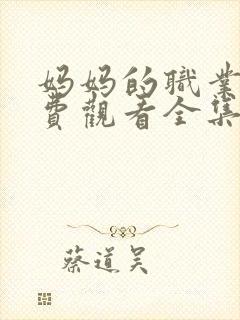 妈妈的職業
費觀看全集
蔡道吴